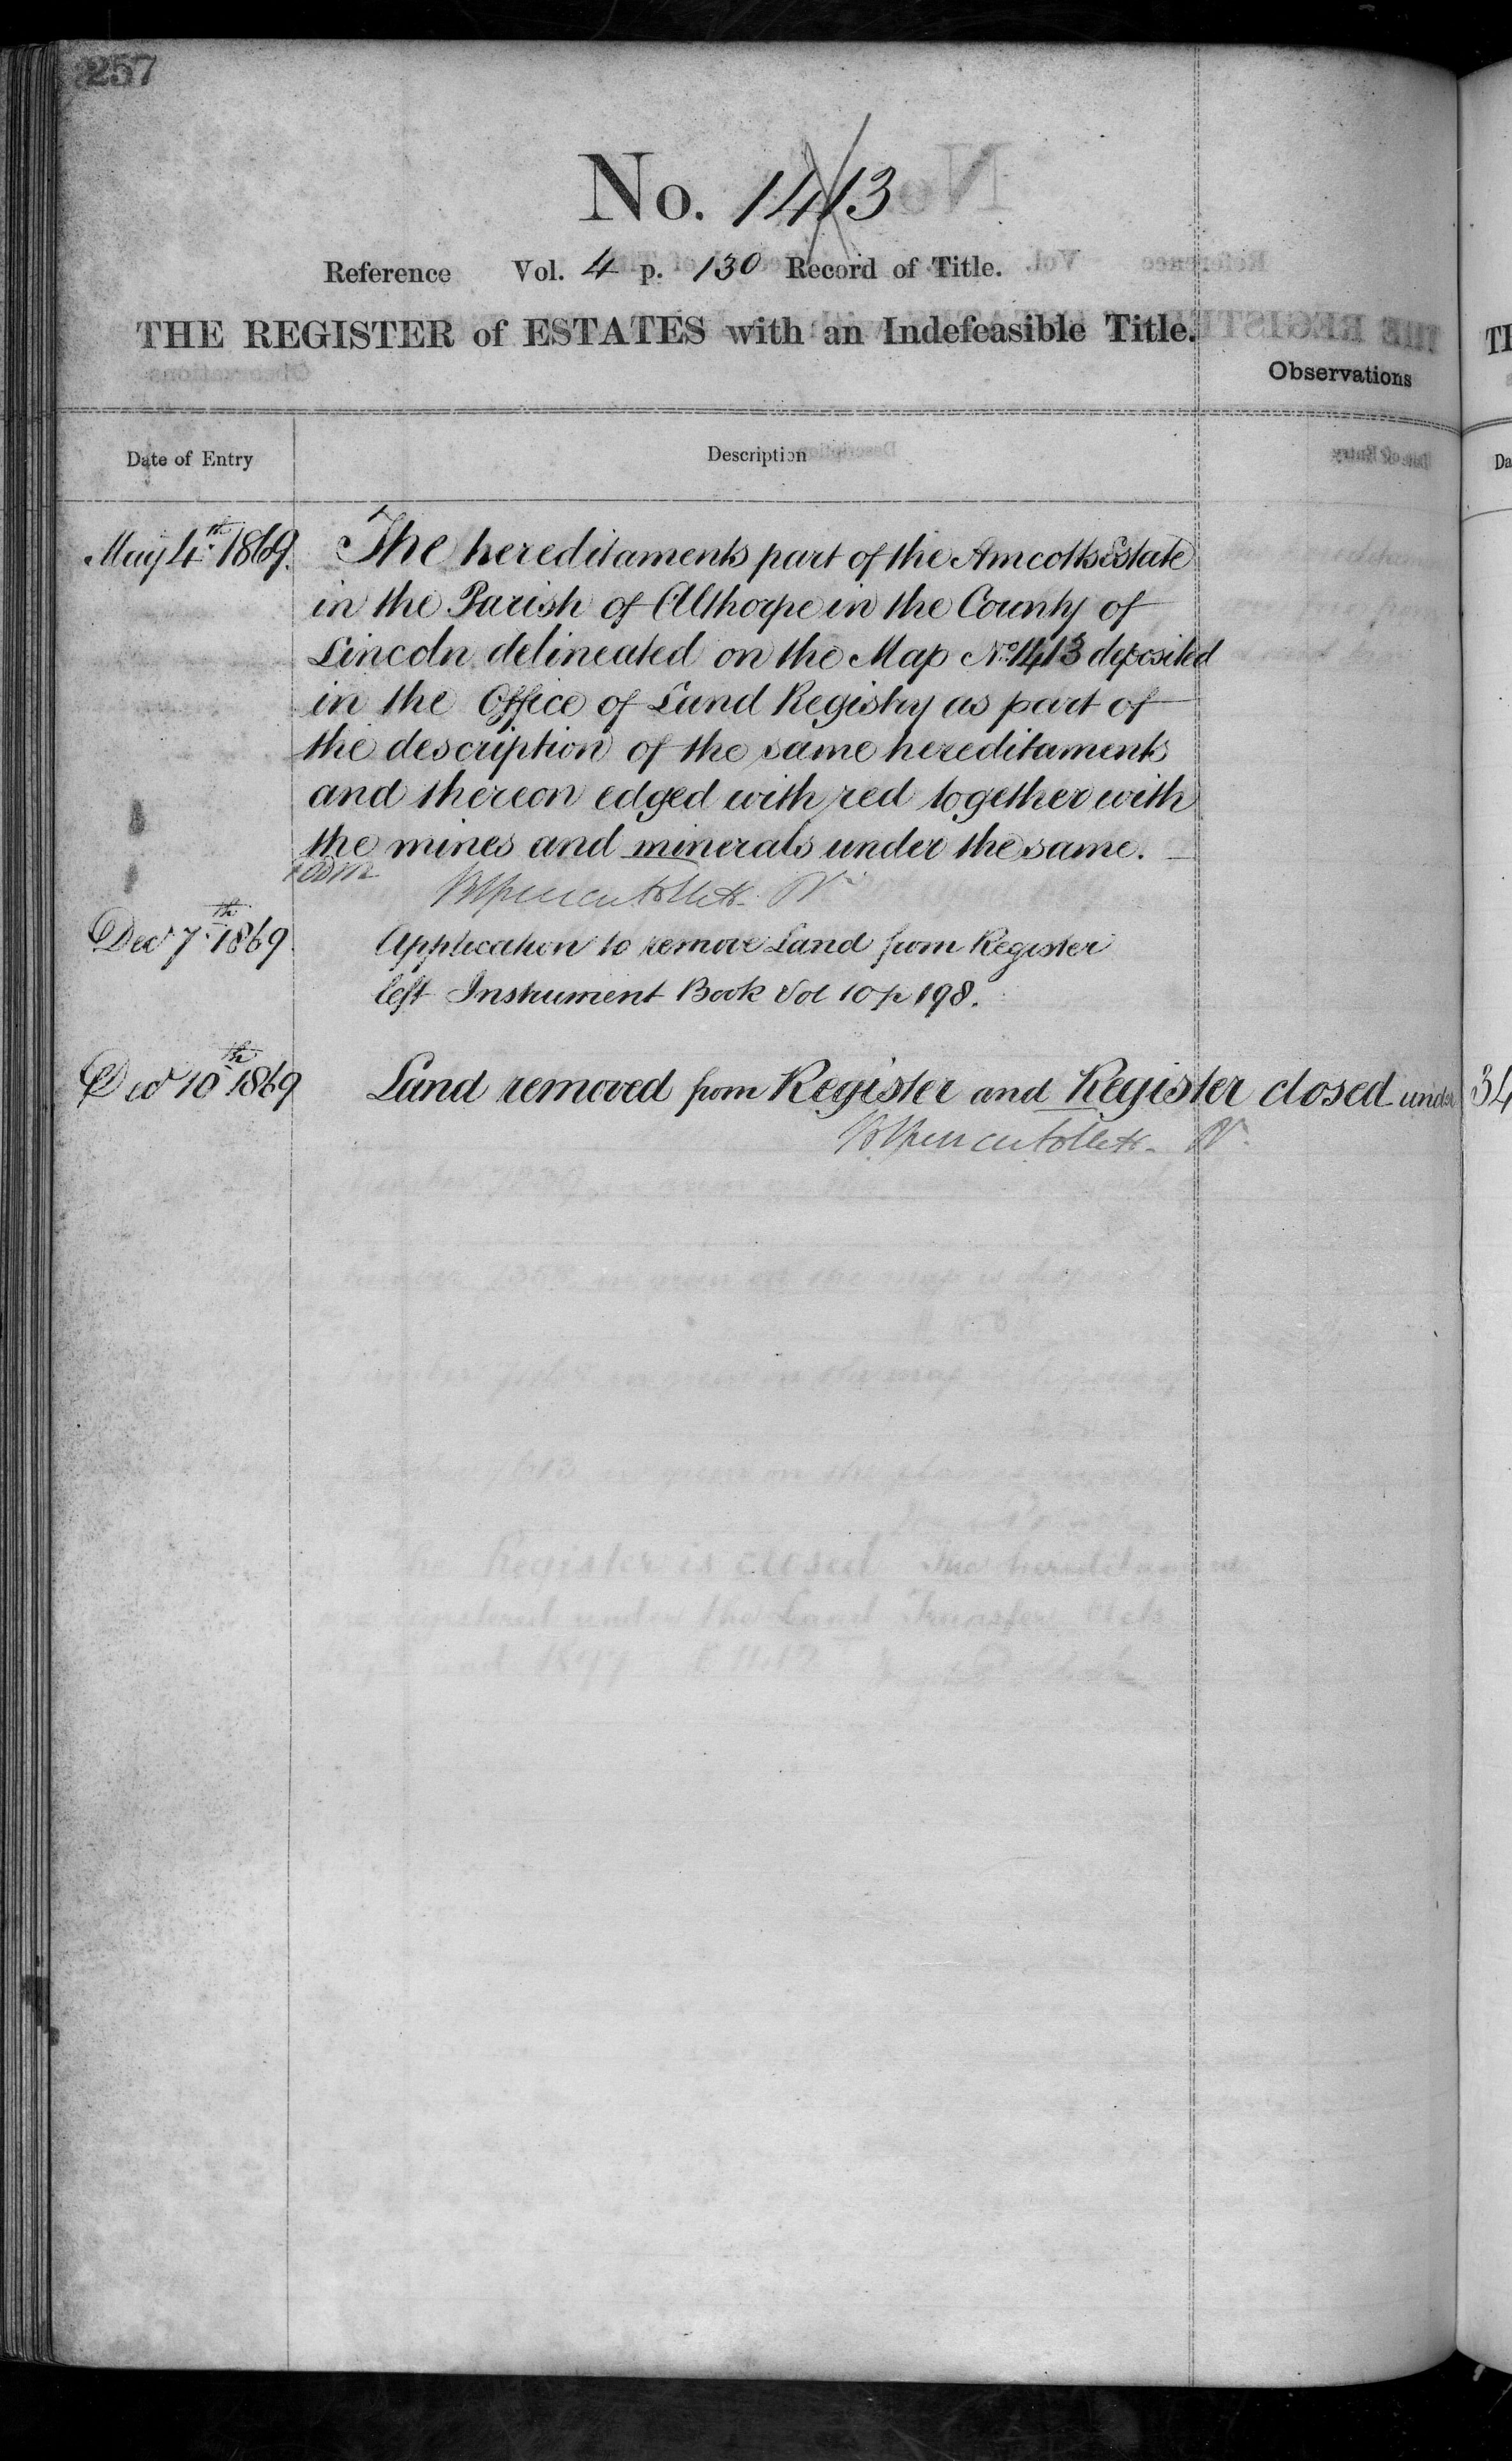 257
No. 1413
Reference Vol. 4 p. 130 Record of Title.
THE REGISTER of ESTATES with an Indefeasible Title.
Observations
Date of Entry Description
May 4th 1869. The hereditaments part of the Amcotts Estate
in the Parish of Althorpe in the County of
Lincoln delineated on the Map No. 1413 deposited
in the Office of Land Registry as part of
the description of the same hereditaments
and thereon edged with red together with
the mines and minerals under the same.
Decr 7th 1869. Application to remove Land from Register
left Instrument Book Vol 10 p 198.
Decr 10th 1869 Land removed from Register and Register closed under 34